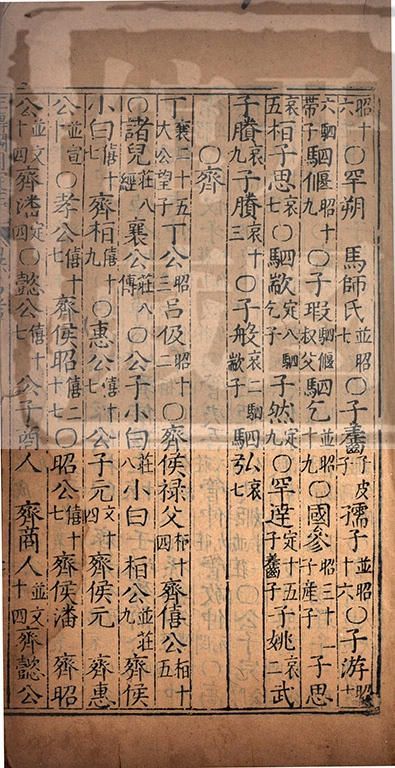 昭十六〇罕朔 馬師氏並昭七〇子齹子皮子孺子並昭十六〇子游昭十
六駟帶子駟偃昭十〇子瑕駟偃叔父駟乞並昭十九〇國參昭三十一子產子子思
哀五桓子思哀七〇駟歂定八駟乞子子然定九〇罕達定十五子齹子子姚哀二武
子賸哀九子賸哀十三〇子般哀二駟歂子駟弘哀七
〇齊
丁襄二十五大公望子丁公昭三呂伋昭十二〇齊侯祿父桓十四齊僖公桓十五
〇諸兒莊八經襄公莊八傳〇公子小白莊八小白 桓公並莊九齊侯
小白僖十七齊桓僖十九〇惠公僖十七公子元文十四齊侯元 齊惠
公並宣十〇孝公僖十七齊侯昭僖二十七〇昭公僖十七齊侯潘 齊昭
公並文十四齊潘定四〇懿公僖十七公子商人 齊商人並文十四齊懿公